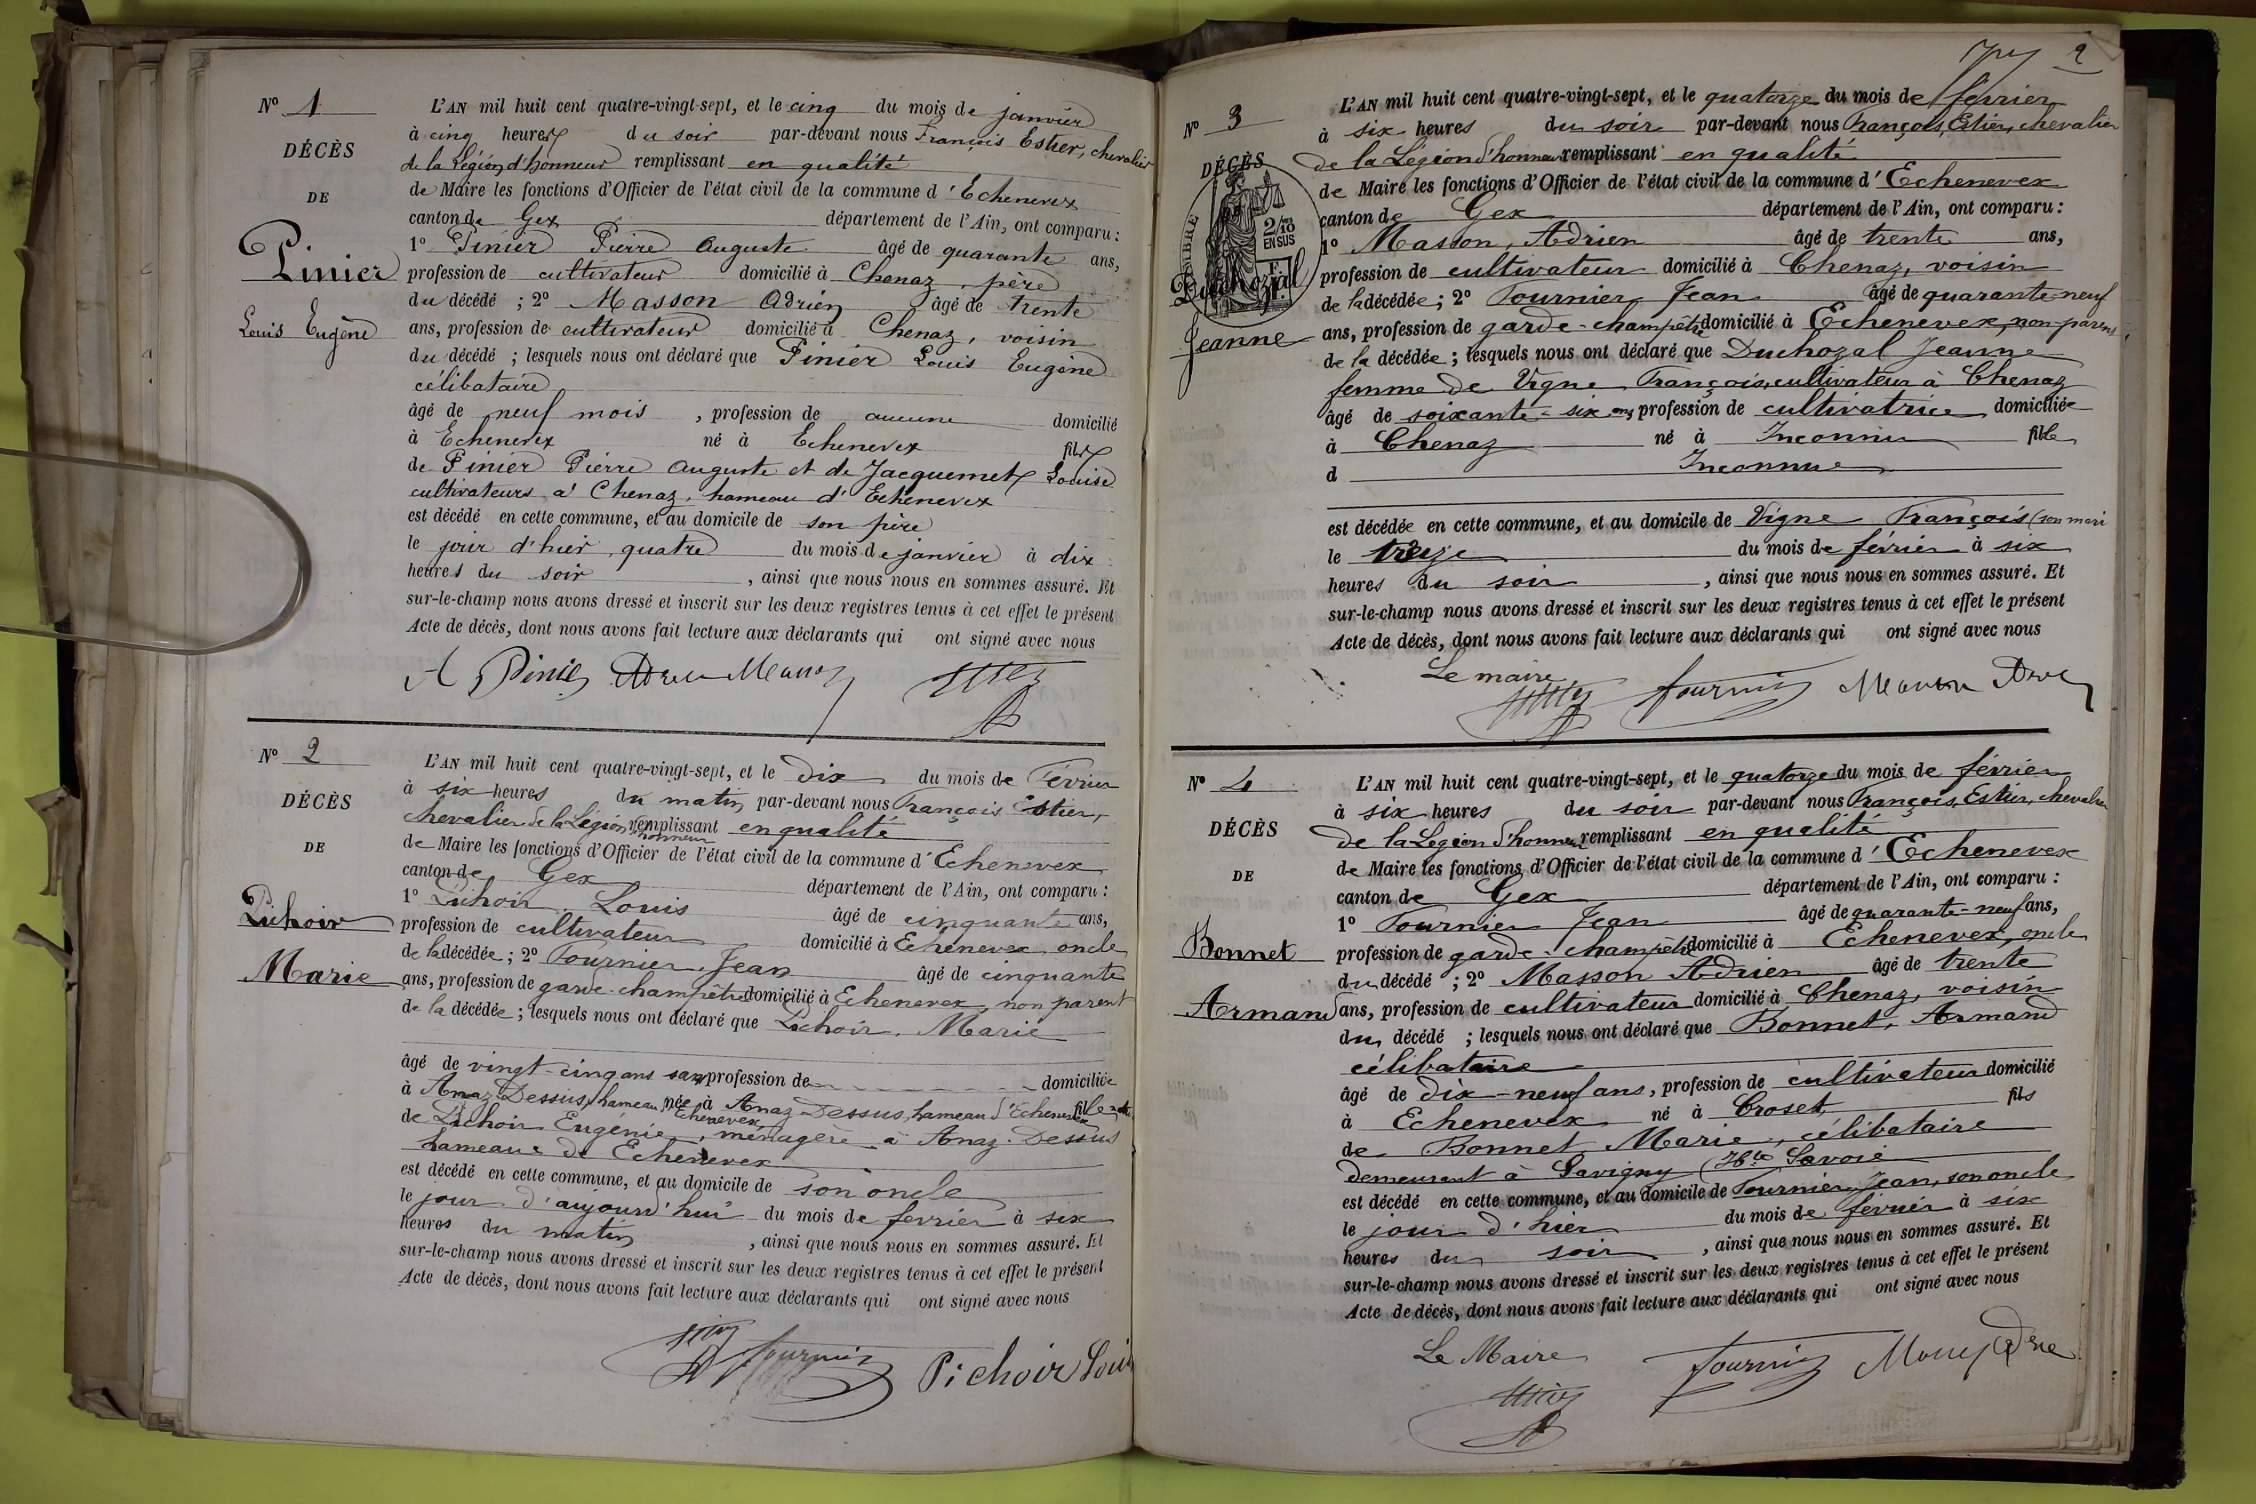 N° 1
DÉCÈS
DE
Pinier
Louis Eugène
L'AN mil huit cent quatre-vingt-sept, et le cinq du mois de janvier
à cinq heures du soir par-devant nous François Estier, chevalier
de la Légion d'honneur remplissant en qualité
de Maire les fonctions d'Officier de l'état civil de la commune d'Echenevex
canton de Gex département de l'Ain, ont comparu :
1° Pinier Pierre Auguste âgé de quarante ans,
profession de cultivateur domicilié à Chenaz, père
du décédé ; 2° Masson Adrien âgé de trente
ans, profession de cultivateur domicilié à Chenaz, voisin
du décédé ; lesquels nous ont déclaré que Pinier Louis Eugène
célibataire
âgé de neuf mois, profession de aucune domicilié
à Echenevex né à Echenevex fils
de Pinier Pierre Auguste et de Jacquemet Louise
cultivateurs à Chenaz, hameau d'Echenevex
est décédé en cette commune, et au domicile de son père
le jour d'hier, quatre du mois de janvier à dix
heures du soir, ainsi que nous nous en sommes assuré. Et
sur-le-champ nous avons dressé et inscrit sur les deux registres tenus à cet effet le présent
Acte de décès, dont nous avons fait lecture aux déclarants qui ont signé avec nous
A Pinier
N° 2
DÉCÈS
DE
Pichoir
Marie
L'AN mil huit cent quatre-vingt-sept, et le dix du mois de Février
à six heures du matin par-devant nous François Estier,
chevalier de la Légion d'honneur remplissant en qualité
de Maire les fonctions d'Officier de l'état civil de la commune d'Echenevex
canton de Gex département de l'Ain, ont comparu :
1° Pichoir, Louis âgé de cinquante ans,
profession de cultivateur domicilié à Echenevex oncle
de la décédée ; 2° Fournier, Jean âgé de cinquante
ans, profession de garde-champêtre domicilié à Echenevex, non parent
de la décédée ; lesquels nous ont déclaré que Pichoir, Marie
âgé de vingt-cinq ans sans profession de domiciliée
à Anaz-Dessus, hameau d'Echenevex, née à Anaz-Dessus, hameau d'Echenevex fille
de Pichoir Eugénie, ménagère à Anaz-Dessus
hameau de Echenevex
est décédé en cette commune, et au domicile de son oncle
le jour d'aujourd'hui du mois de février à six
heures du matin, ainsi que nous nous en sommes assuré. Et
sur-le-champ nous avons dressé et inscrit sur les deux registres tenus à cet effet le présent
Acte de décès, dont nous avons fait lecture aux déclarants qui ont signé avec nous
Fournier Pichoir Louis
2
N° 3
DÉCÈS
TIMBRE
2/10
EN SUS
Duchozal
Jeanne
L'AN mil huit cent quatre-vingt-sept, et le quatorze du mois de février
à six heures du soir par-devant nous François, Estier, chevalier
de la Légion d'honneur remplissant en qualité
de Maire les fonctions d'Officier de l'état civil de la commune d'Echenevex
canton de Gex département de l'Ain, ont comparu :
1° Masson, Adrien âgé de trente ans,
profession de cultivateur domicilié à Chenaz, voisin
de la décédée ; 2° Fournier Jean âgé de quarante-neuf
ans, profession de garde-champêtre domicilié à Echenevex, non parent
de la décédée ; lesquels nous ont déclaré que Duchozal Jeanne
femme de Vigne François, cultivateur à Chenaz
âgé de soixante-six ans, profession de cultivatrice domiciliée
à Chenaz né à Inconnu fille
d Inconnue
est décédée en cette commune, et au domicile de Vigne François (son mari
le treize du mois de février à six
heures du soir, ainsi que nous nous en sommes assuré. Et
sur-le-champ nous avons dressé et inscrit sur les deux registres tenus à cet effet le présent
Acte de décès, dont nous avons fait lecture aux déclarants qui ont signé avec nous
Le maire
Fournier Masson
N° 4
DÉCÈS
DE
Bonnet
Armand
L'AN mil huit cent quatre-vingt-sept, et le quatorze du mois de février
à six heures du soir par-devant nous François, Estier, chevalier
de la Légion d'honneur remplissant en qualité
de Maire les fonctions d'Officier de l'état civil de la commune d'Echenevex
canton de Gex département de l'Ain, ont comparu :
1° Fournier Jean âgé de quarante-neuf ans,
profession de garde-champêtre domicilié à Echenevex, oncle
du décédé ; 2° Masson Adrien âgé de trente
ans, profession de cultivateur domicilié à Chenaz, voisin
du décédé ; lesquels nous ont déclaré que Bonnet, Armand
célibataire
âgé de dix-neuf ans, profession de cultivateur domicilié
à Echenevex né à Croset fils
de Bonnet Marie, célibataire
demeurant à Savigny (Hte Savoie
est décédé en cette commune, et au domicile de Fournier Jean, son oncle
le jour d'hier du mois de février à six
heures du soir, ainsi que nous nous en sommes assuré. Et
sur-le-champ nous avons dressé et inscrit sur les deux registres tenus à cet effet le présent
Acte de décès, dont nous avons fait lecture aux déclarants qui ont signé avec nous
Le Maire
Fournier